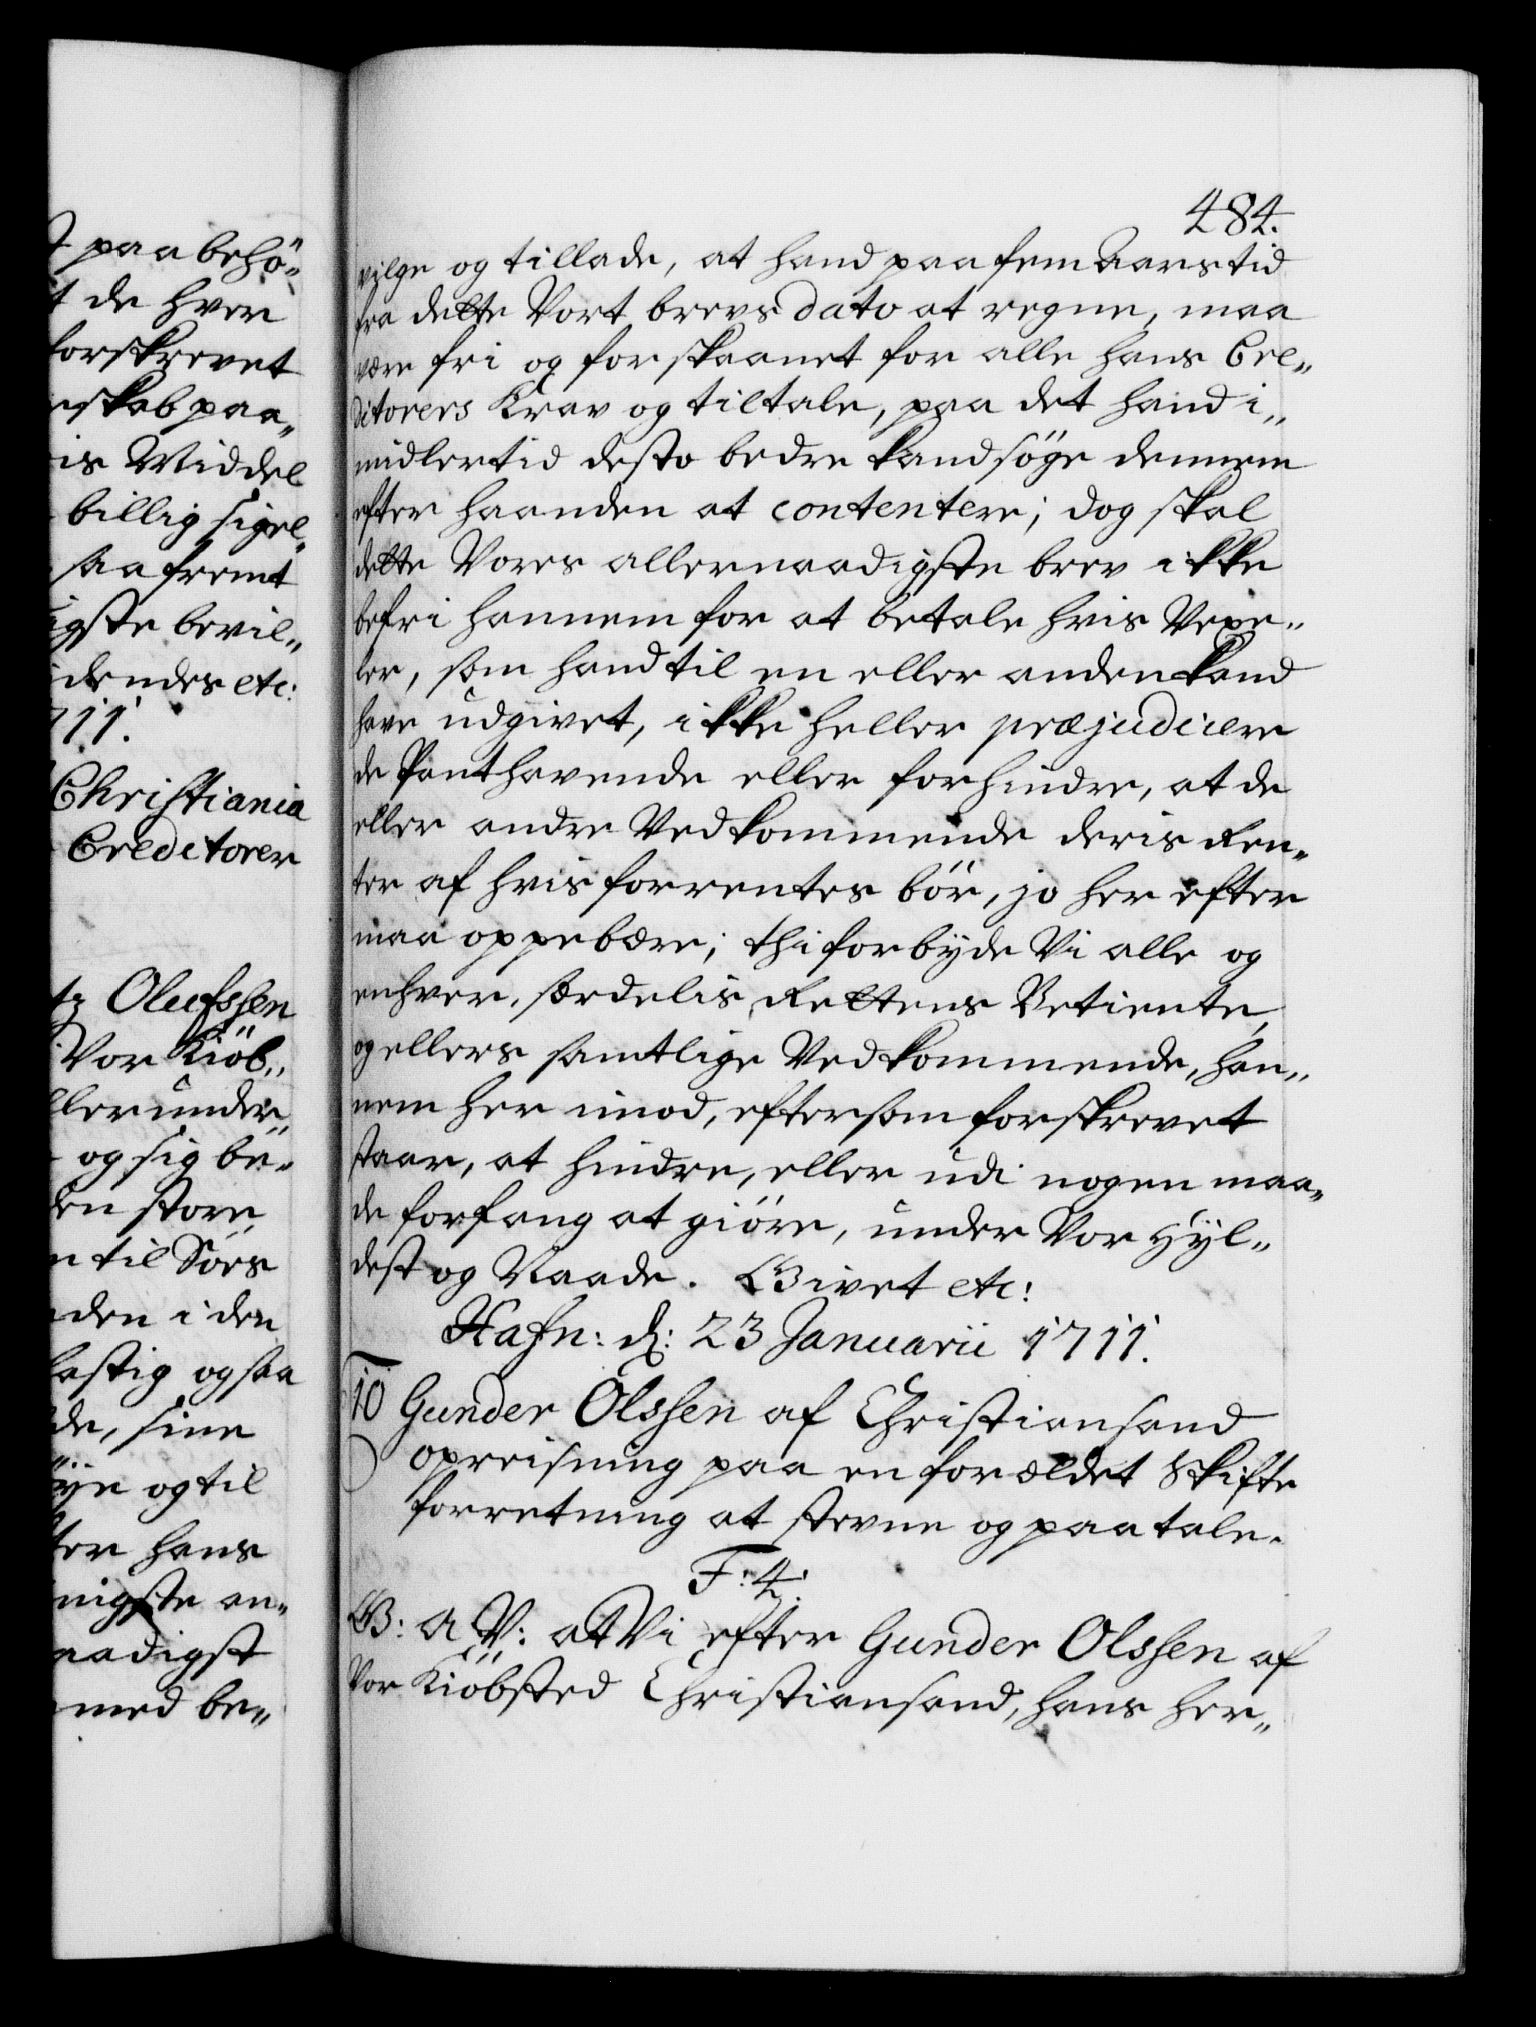 t paa behö„
t de hver
forskrevet
skab paa„
is Middel
billig sigel„
saafremt
igste bevil„
dendes etc:
711.
Christiania
Creditorer
tz Olufssen
Vor Kiöb„
ller under„
og sig be„
en store
n til Söes
den i den
lastig og saa
de, sine
ye og til
ter hans
nigste an„
naadigst
med be„
484.
vilge og tillade, at hand paa fem Aars tid
fra dette Vort brevs dato at regne, maa
være fri og forskaanet for alle hans Cre„
ditorers Krav og tiltale, paa det hand i„
midlertid desto bedre kand söge dennem
efter haanden at contentere; dog skal
dette Vores allernaadigste brev ikke
befri hannem for at betale hvis Vexe„
ler, som hand til en eller anden kand
have udgivet, ikke heller præjudicere
de Panthavende eller forhindre, at de
eller andre Vedkommende deris Ren„
ter af hvis forrentes bör, jo her efter
maa oppebære; thi forbyde Vi alle og
enhver, særdelis Rettens Betiente,
og ellers samtlige Vedkommende, han„
nem her imod, eftersom forskrevet
staar, at hindre, eller udi nogen maa„
de forfang at giöre, under Vor Hyl„
dest og Naade. Givet etc:
Hafn: d: 23 Januarii 1711.
10 Gunder Olssen af Christiansand
opreisning paa en forældet Skifte
forretning at stevne og paatale.
F: 4.
G: A V: at Vi efter Gunder Olssen af
Vor Kiöbsted Christiansand, hans her„